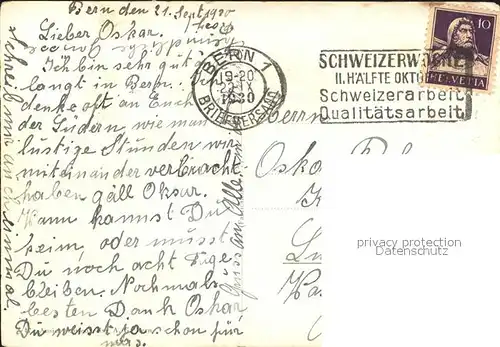 Bern den 21. Sept 1930
Lieber Oskar.
Ich bin sehr gut
langt in Bern.
denke oft an Euch
der Lüdern, wie man
lustige Stunden wir
miteinander verbracht
haben gäll Oskar.
Wann kannst Du
heim, oder musst
Du noch acht Tage
bleiben. Nochmals
besten Dank Oskar
Du weisst ja schon für
was.
Schreib mir auch einmal.
Gruss an Alle
BERN 1
19-20
1930
BRIEFVERSAND
SCHWEIZERWOCHE
II. HÄLFTE OKTO
Schweizerarbeit
Qualitätsarbeit
10
HELVETIA
Herrn
Oskar
privacy protection
Datenschutz